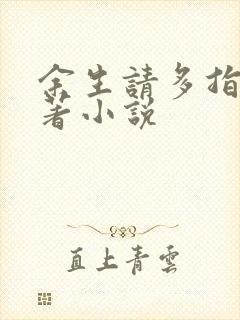 余生請多指
著小説
直上青雲